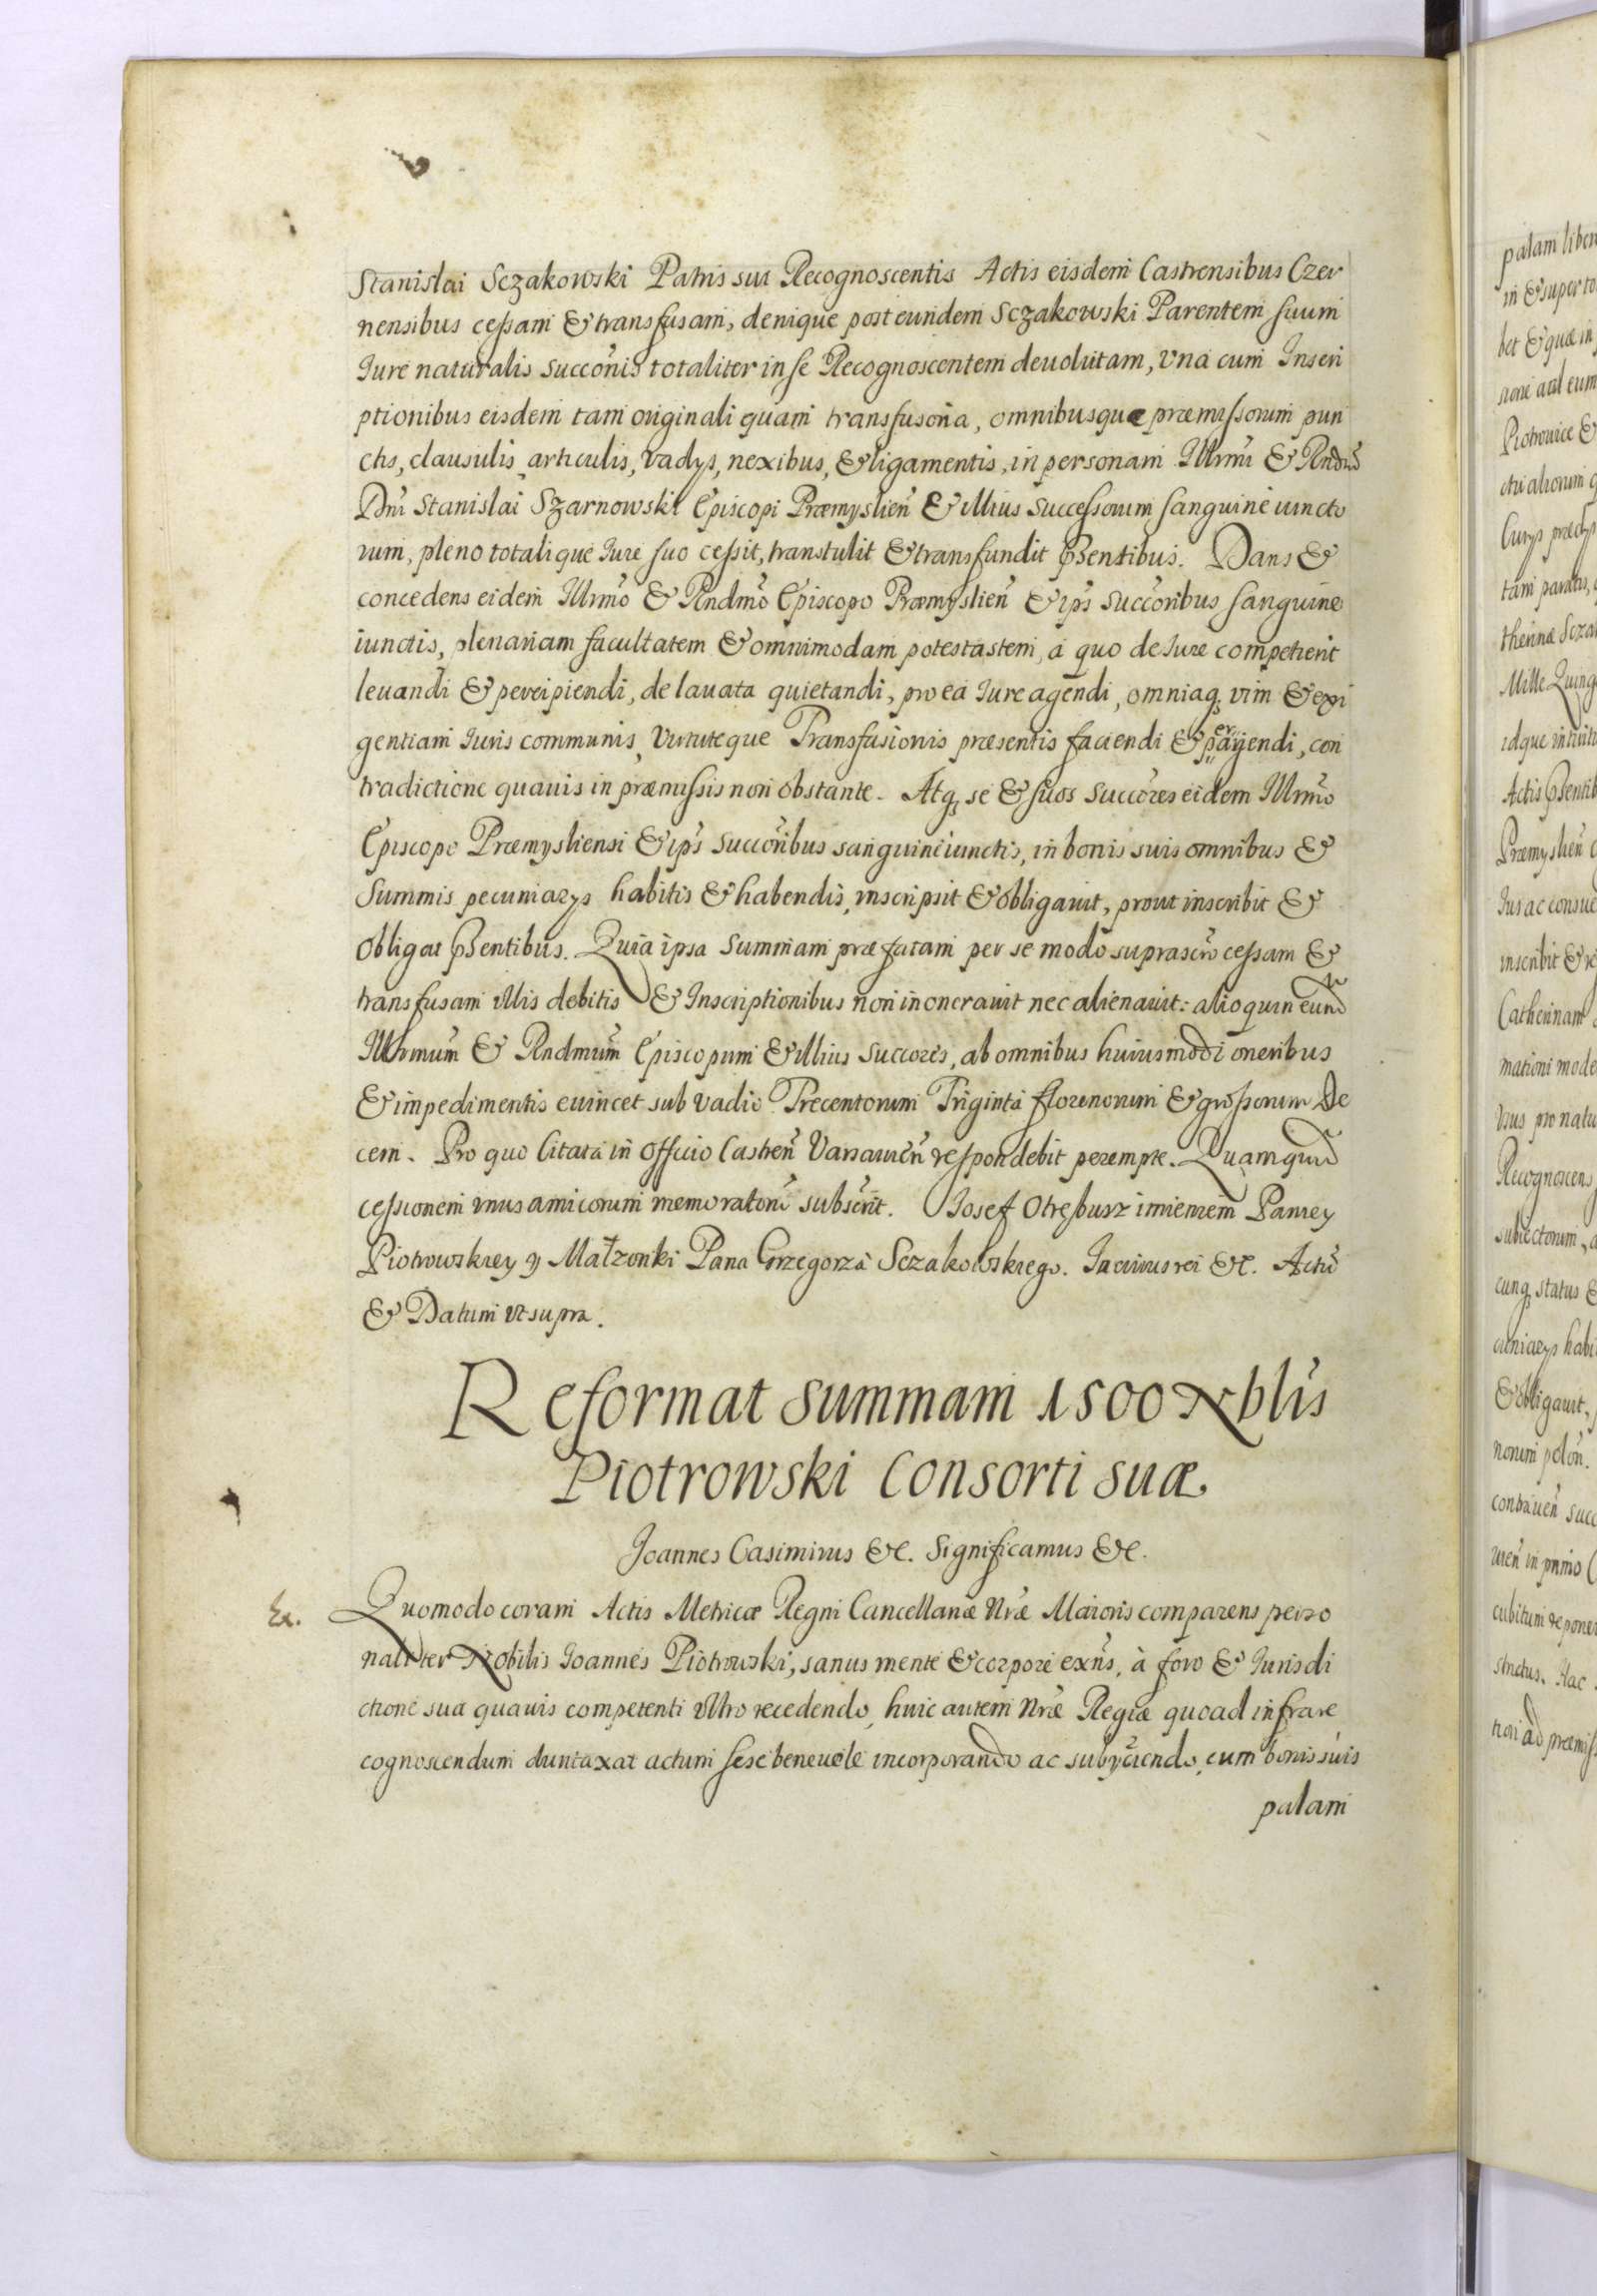 Stanislai Sczakowski Patris sui Recognoscentis Actis eisdem Castrensibus Czer
nensibus cessam & transfusam, denique post eundem Sczakowski Parentem suum
Iure naturalis succonis totaliter in se Recognoscentem deuolutam, vna cum Inscri
ptionibus eisdem tam originali quam transfusoria, omnibusquæ præmissorum pun
ctis, clausulis articulis, vadys, nexibus, & ligamentis, in personam Illrmi & Rndmi
Dni Stanislai Szarnowski Episcopi Præmyslien & illius successorum sanguine iuncto
rum, pleno totalique Iure suo cessit, transtulit & transfundit psentibus. Dans &
concedens eidem Illrmo & Rndmo Episcopo Præmyslien & ips succoribus sanguine
iunctis, plenariam facultatem & omnimodam potestastem, a quo de Iure competierit
leuandi & percipiendi, de lauata quietandi, pro ea Iure agendi, omniaq vim & exi
gentiam Iuris communis, virtuteque Transfusionis præsentis faciendi & peragendi, con
tradictione quauis in præmissis non obstante. Atq se & suos succores eidem Illrmo
Episcopo Præmysliensi & ips succoribus sanguine iunctis, in bonis suis omnibus &
summis pecuniarys habitis & habendis, inscripsit & obligauit, prout inscribit &
obligat psentibus. Quia ipsa summam præfatam per se modo suprascro cessam &
transfusam illis debitis & Inscriptionibus non inonerauit nec alienauit: alioquin eund
Illrmum & Rndmum Episcopum & illius succores, ab omnibus huiusmodi oneribus
& impedimentis euincet sub vadio Trecentorum Triginta florenorum & grossorum De
cem. Pro quo Citata in Officio Castren Varsauien respondebit perempte. Quamquid
cessionem vnus amicorum memoratoru subscrit. Iosef Otrębusz imieniem Paniey
Piotrowskiey y Małzonki Pana Grzegorza Sczakowskiego. In cuius rei &c. Actu
& Datum vt supra.
Reformat summam 1500 Nblis
Piotrowski Consorti suæ.
Joannes Casimirus &c. Significamus &c.
Ex.
Quomodo coram Actis Metricæ Regni Cancellariæ Nræ Maioris comparens perso
naliter Nobilis Joannes Piotrowski, sanus mente & corpore exns, à foro & Iurisdi
ctione sua quauis competenti vltro recedendo, huic autem Nræ Regiæ quoad infra re
cognoscendum duntaxat actum sese beneuole incorporando ac subyciendo, cum bonis suis
palam